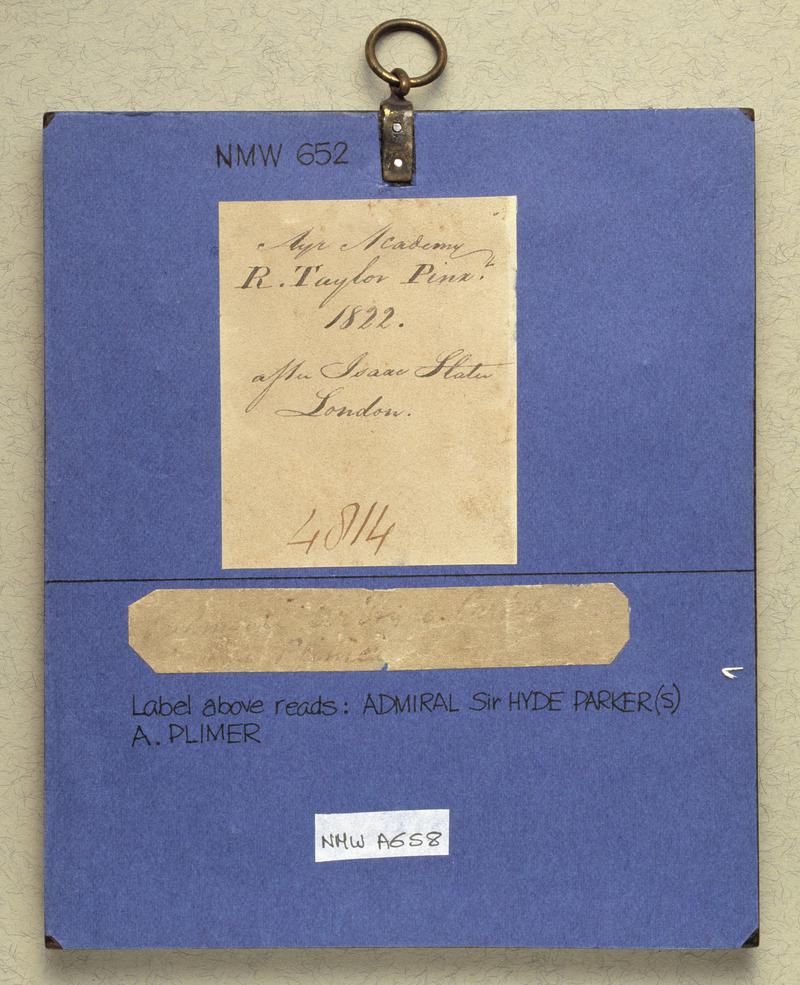 NMW 652
Ayr Academy
R. Taylor Pinx.t
1822.
after Isaac Slater
London.
4814
Label above reads: ADMIRAL Sir HYDE PARKER(S)
A. PLIMER
NMW A658